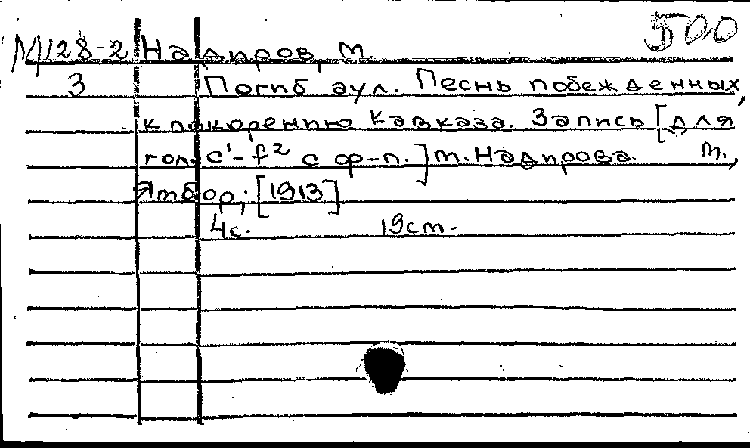 500
М128-2 Надиров, М.
3 Погиб аул. Песнь побежденных,
к покорению Кавказа. Запись [для
гол. c¹-f² с ф-п.] М. Надирова. М.,
Ямбор, [1913]
4с. 19см.